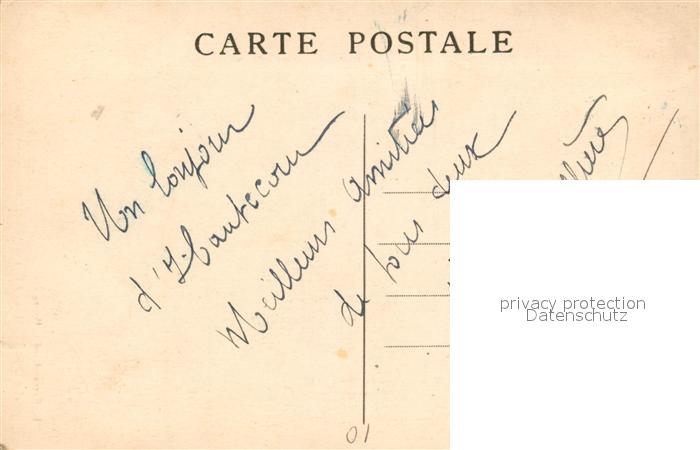 CARTE POSTALE
Un bonjour
d'Hautecour
Meilleurs amitiés
de tous deux
privacy protection
Datenschutz
01